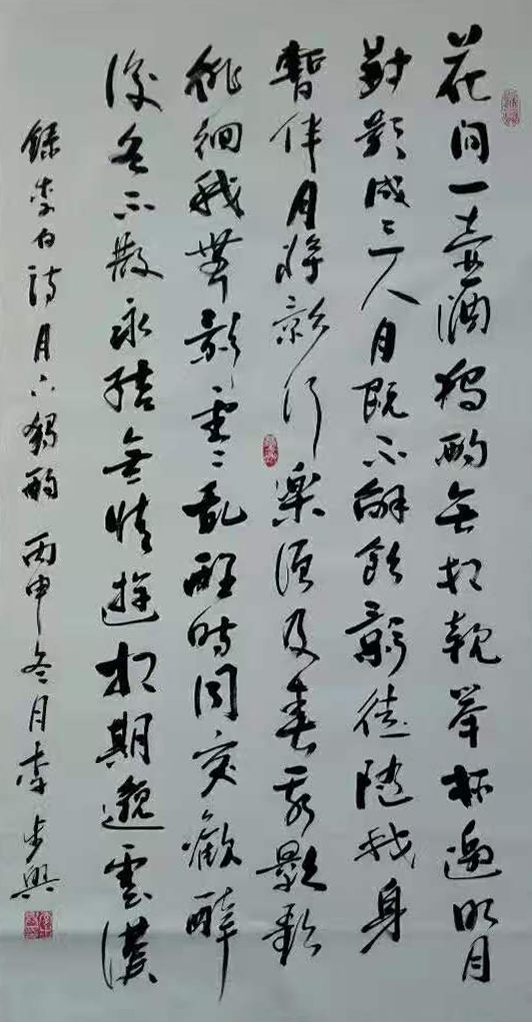 花间一壶酒獨酌無相親举杯邀明月
對影成三人月既不解飲影徒随我身
暫伴月将影行樂須及春我影歌
徘徊我舞影零乱醒時同交歡醉
後各不散永结無情遊相期邈雲漢
録李白詩月下獨酌 丙申冬月李步興